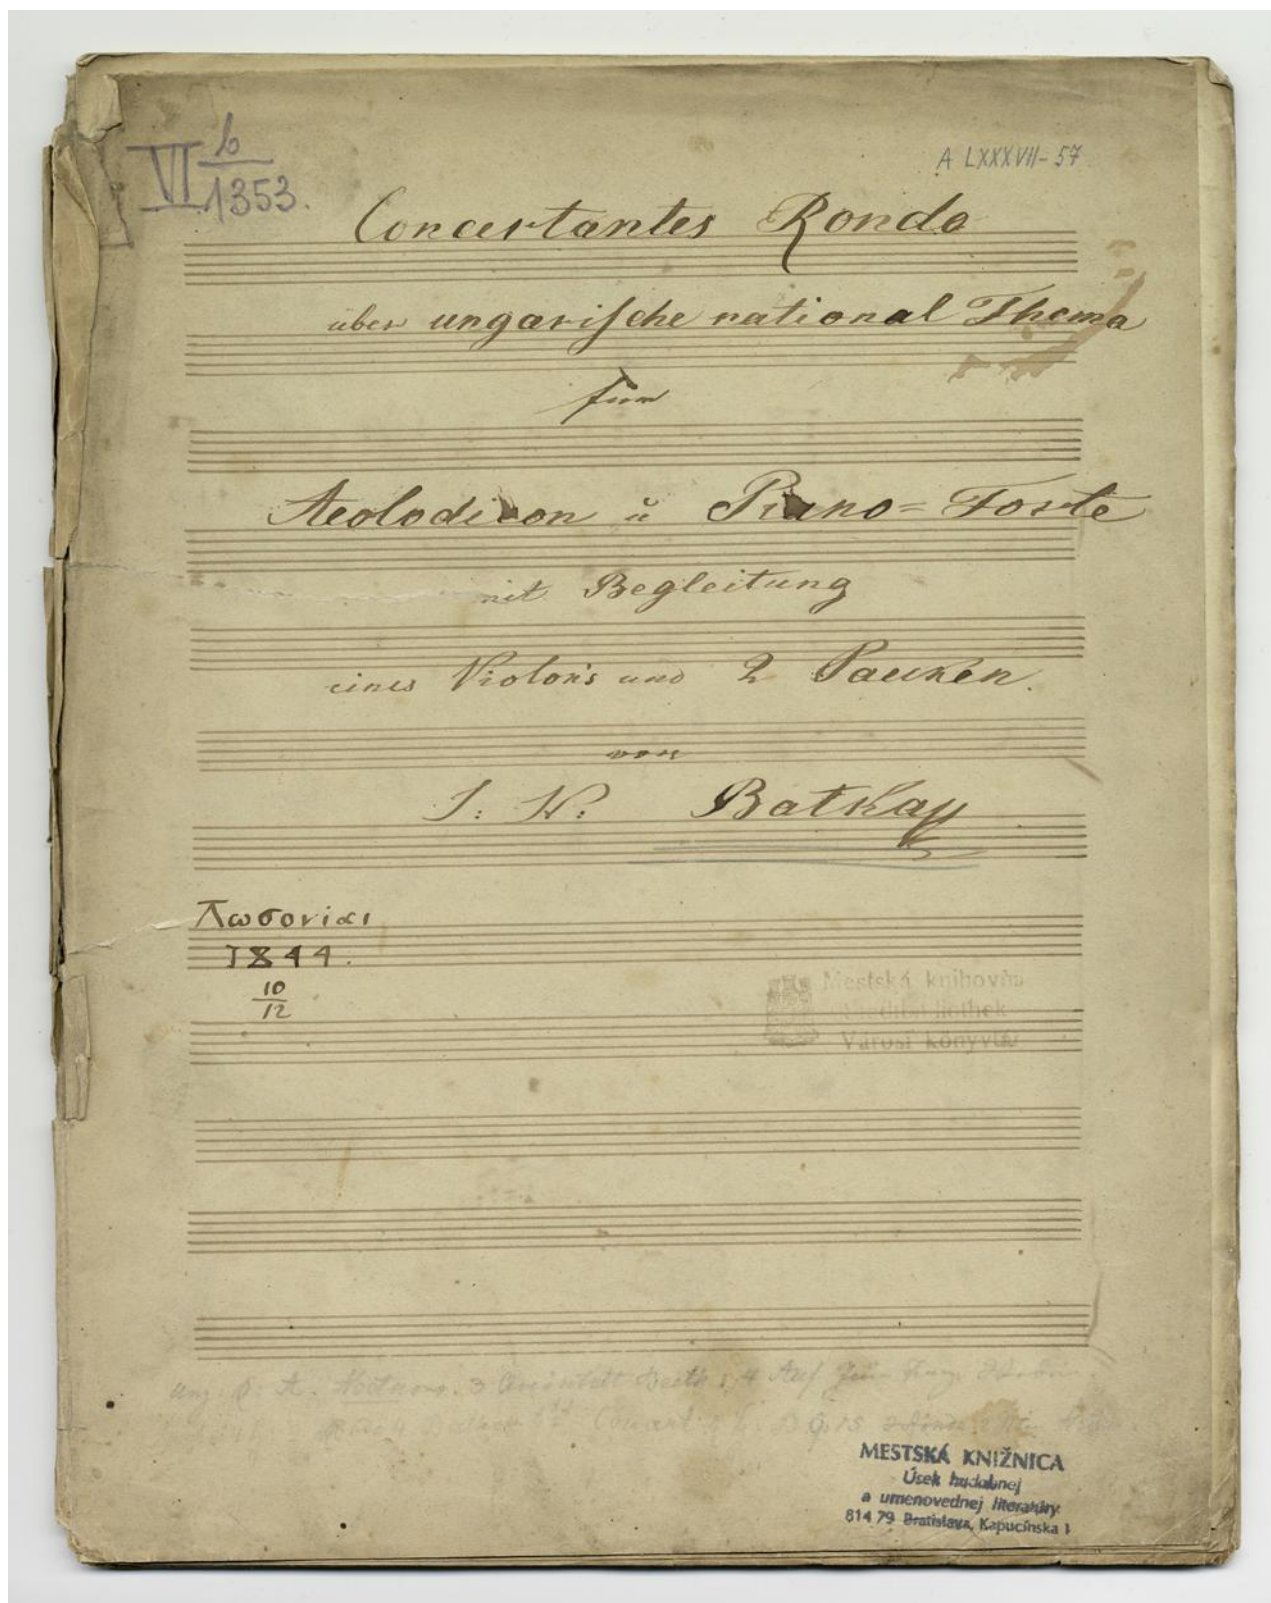 VI b/1353.
A LXXXVII-57
Concertantes Rondo
über ungarische national Thema
für
Aeolodicon ŭ Piano=Forte
mit Begleitung
eines Violon's und 2 Pauken.
von
J: N: Batkay
Πωσονιαι
1844.
10/12
Mestská knihovňa
Stadtbibliothek
Városi könyvtár
MESTSKÁ KNIŽNICA
Úsek hudobnej
a umenovednej literatúry
814 79 Bratislava, Kapucínska 1